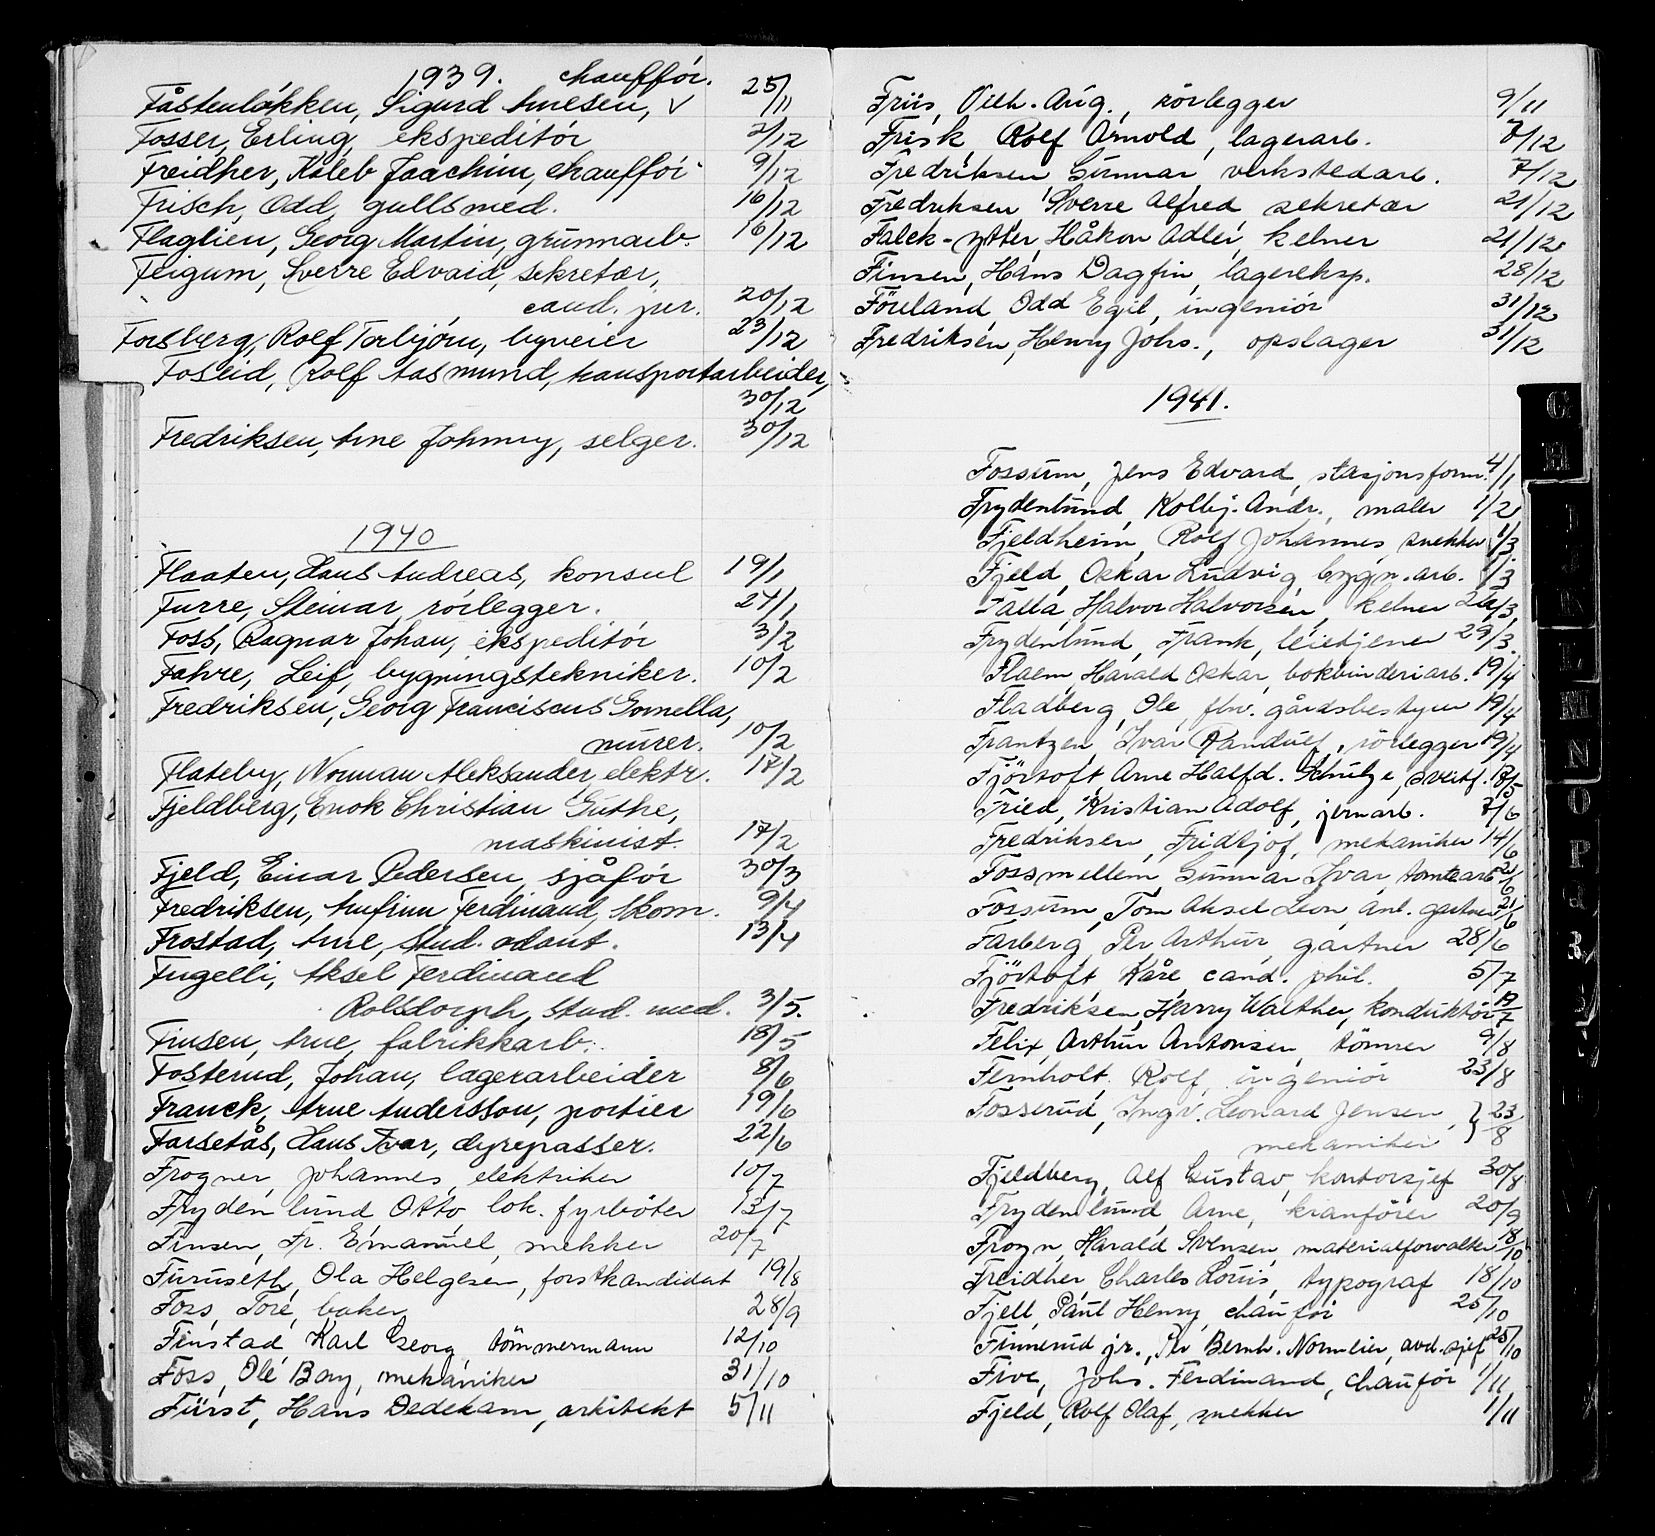 1939. chauffør.
Fåstenløkken, Sigurd Arnesen, V 25/11
Fosser, Erling, ekspeditør 2/12
Freidher, Kaleb Joachim, chauffør 9/12
Frisch, Odd, gullsmed. 16/12
Flaglien, Georg Martin, grunnarb. 16/12
Feigum, Sverre Edvard, sekretær,
cand. jur. 20/12
Forsberg, Rolf Torbjørn, byveier 23/12
Foseid, Rolf Aasmund, transportarbeider,
30/12
Fredriksen, Arne Johnny, selger. 30/12
1940
Flaaten, Hans Andreas, konsul 19/1
Furre, Steinar, rørlegger. 27/1
Foss, Ragnar Johan, ekspeditør 3/2
Fahre, Leif, bygningstekniker. 10/2
Fredriksen, Georg Franciscus Gomella,
murer. 10/2
Flateby, Norman Aleksander, elektr. 17/2
Fjeldberg, Enok Christian Guthe,
maskinist. 17/2
Fjeld, Einar Pedersen, sjåfør 30/3
Fredriksen, Arnfinn Ferdinand, skom. 9/4
Frostad, Arne, stud. odont. 13/4
Fugelli, Aksel Ferdinand
Rolsdorph, stud. med. 3/5.
Finsen, Arne, fabrikkarb. 18/5
Fosterud, Johan, lagerarbeider 8/6
Franck, Arne Andersson, portier 19/6
Farsetås, Hans Ivar, dyrepasser. 22/6
Frogner, Johannes, elektriker 10/7
Frydenlund Otto, lok. fyrbøter 13/7
Finsen, Fr. Emanuel, snekker 20/7
Furuseth, Ola Helgesen, forstkandidat 19/8
Foss, Tore, baker 28/9
Finstad Karl Georg, tømmermann 12/10
Foss, Ole Bony, mekaniker 31/10
Fürst, Hans Dedekam, arkitekt 5/11
Friis, Vilh. Aug., rørlegger 9/11
Frisk, Rolf Arnold, lagerarb. 7/12
Fredriksen Gunnar verkstedarb. 7/12
Fredriksen, Sverre Alfred, sekretær 21/12
Falck-Ytter, Håkon Adler, kelner 21/12
Finsen, Hans Dagfin, lagereksp. 28/12
Föreland Odd Egil, ingeniør 31/12
Fredriksen, Henry Johs., opslager 31/12
1941.
Fossum, Jens Edvard, stasjonsform. 4/1
Frydenlund, Kolbj. Andr., maler 1/2
Fjeldheim, Rolf Johannes snekker 1/3
Fjeld, Oskar Ludvig bygn. arb. 1/3
Falla, Halvor Halvorsen, kelner 22/3
Frydenlund, Frank, leietjener 29/3.
Flaem, Harald Oskar, bokbinderiarb. 19/4
Fladberg, Ole, fhv. gårdsbestyrer 19/4
Frantzen, Ivar Randulf, rørlegger 19/4
Fjörtoft, Arne Halfd. Schulze, 18/5
Fried, Kristian Adolf, jernarb. 7/6
Fredriksen, Fridtjof, mekaniker 14/6
Fossmellem Gunnar Ivar, tomtearb 21/6
Fossum, Tom Aksel Leon, anl. gartner 21/6
Farberg, Per Arthur, gartner 28/6
Fjörtoft, Kåre cand. phil. 5/7
Fredriksen, Harry Walther, konduktør 19/7
Felix, Arthur Antonsen, tömrer 9/8
Fernholt, Rolf, ingeniør 23/8
Fosserud, Ingv. Leonard Jensen, } 23/8
mekaniker
Fjeldberg, Alf Gustav, kontorsjef 30/8
Frydenlund Arne, kranfører 20/9
Frogn, Harald Svensen, materialforvalter 18/10
Freidher Charles Louis, typograf 18/10
Fjell, Paul Henry, chauför 25/10
Finnerud jr., Per Bernh. Normleier, avd. sjef 25/10
Five, Johs. Ferdinand, chauför 1/11
Fjeld, Rolf Olaf, snekker 1/11
G
H
I
L
M
N
O
P